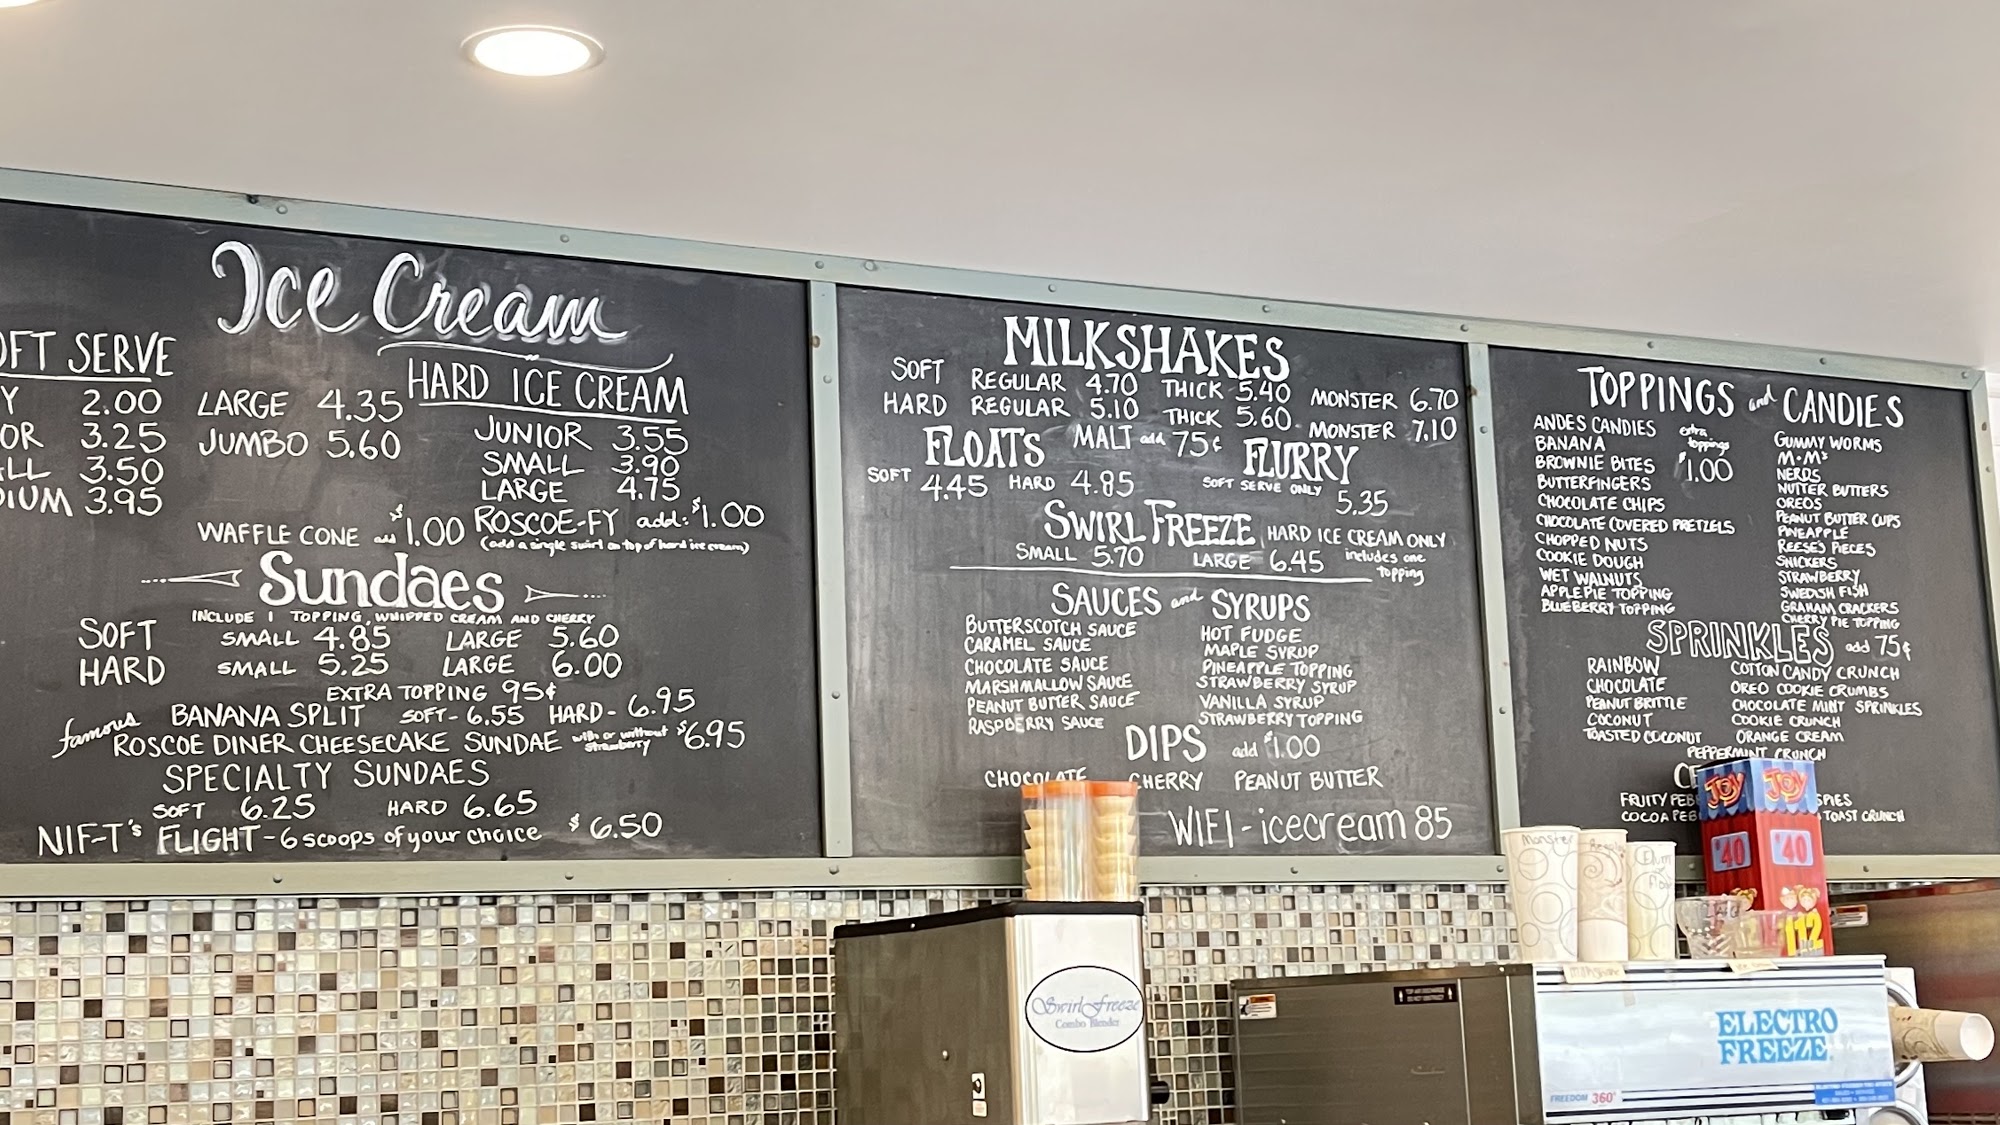 Ice Cream
OFT SERVE
Y 2.00
OR 3.25
ALL 3.50
DIUM 3.95
LARGE 4.35
JUMBO 5.60
HARD ICE CREAM
JUNIOR 3.55
SMALL 3.90
LARGE 4.75
WAFFLE CONE add $1.00
ROSCOE-FY add: $1.00
(add a single swirl on top of hard ice cream)
Sundaes
INCLUDE 1 TOPPING, WHIPPED CREAM AND CHERRY
SOFT SMALL 4.85 LARGE 5.60
HARD SMALL 5.25 LARGE 6.00
EXTRA TOPPING 95¢
famous BANANA SPLIT SOFT- 6.55 HARD- 6.95
ROSCOE DINER CHEESECAKE SUNDAE with or without strawberry $6.95
SPECIALTY SUNDAES
SOFT 6.25 HARD 6.65
NIF-T's FLIGHT - 6 scoops of your choice $6.50
MILKSHAKES
SOFT REGULAR 4.70 THICK 5.40 MONSTER 6.70
HARD REGULAR 5.10 THICK 5.60 MONSTER 7.10
MALT add 75¢
FLOATS
SOFT 4.45 HARD 4.85
FLURRY
SOFT SERVE ONLY 5.35
SWIRL FREEZE HARD ICE CREAM ONLY
SMALL 5.70 LARGE 6.45 includes one topping
SAUCES and SYRUPS
BUTTERSCOTCH SAUCE
CARAMEL SAUCE
CHOCOLATE SAUCE
MARSHMALLOW SAUCE
PEANUT BUTTER SAUCE
RASPBERRY SAUCE
HOT FUDGE
MAPLE SYRUP
PINEAPPLE TOPPING
STRAWBERRY SYRUP
VANILLA SYRUP
STRAWBERRY TOPPING
DIPS add $1.00
CHOCOLATE CHERRY PEANUT BUTTER
WIFI - icecream 85
TOPPINGS and CANDIES
ANDES CANDIES
BANANA
BROWNIE BITES
BUTTERFINGERS
CHOCOLATE CHIPS
CHOCOLATE COVERED PRETZELS
CHOPPED NUTS
COOKIE DOUGH
WET WALNUTS
APPLE PIE TOPPING
BLUEBERRY TOPPING
extra toppings
$1.00
GUMMY WORMS
M•M's
NERDS
NUTTER BUTTERS
OREOS
PEANUT BUTTER CUPS
PINEAPPLE
REESE'S PIECES
SNICKERS
STRAWBERRY
SWEDISH FISH
GRAHAM CRACKERS
CHERRY PIE TOPPING
SPRINKLES add 75¢
RAINBOW
CHOCOLATE
PEANUT BRITTLE
COCONUT
TOASTED COCONUT
COTTON CANDY CRUNCH
OREO COOKIE CRUMBS
CHOCOLATE MINT SPRINKLES
COOKIE CRUNCH
ORANGE CREAM
PEPPERMINT CRUNCH
CE
FRUITY PEB
SPIES
COCOA PEB
TOAST CRUNCH
JOY JOY
40 40
112
Monster
Regular
Swirl Freeze
Combo Blender
ELECTRO
FREEZE
FREEDOM 360°